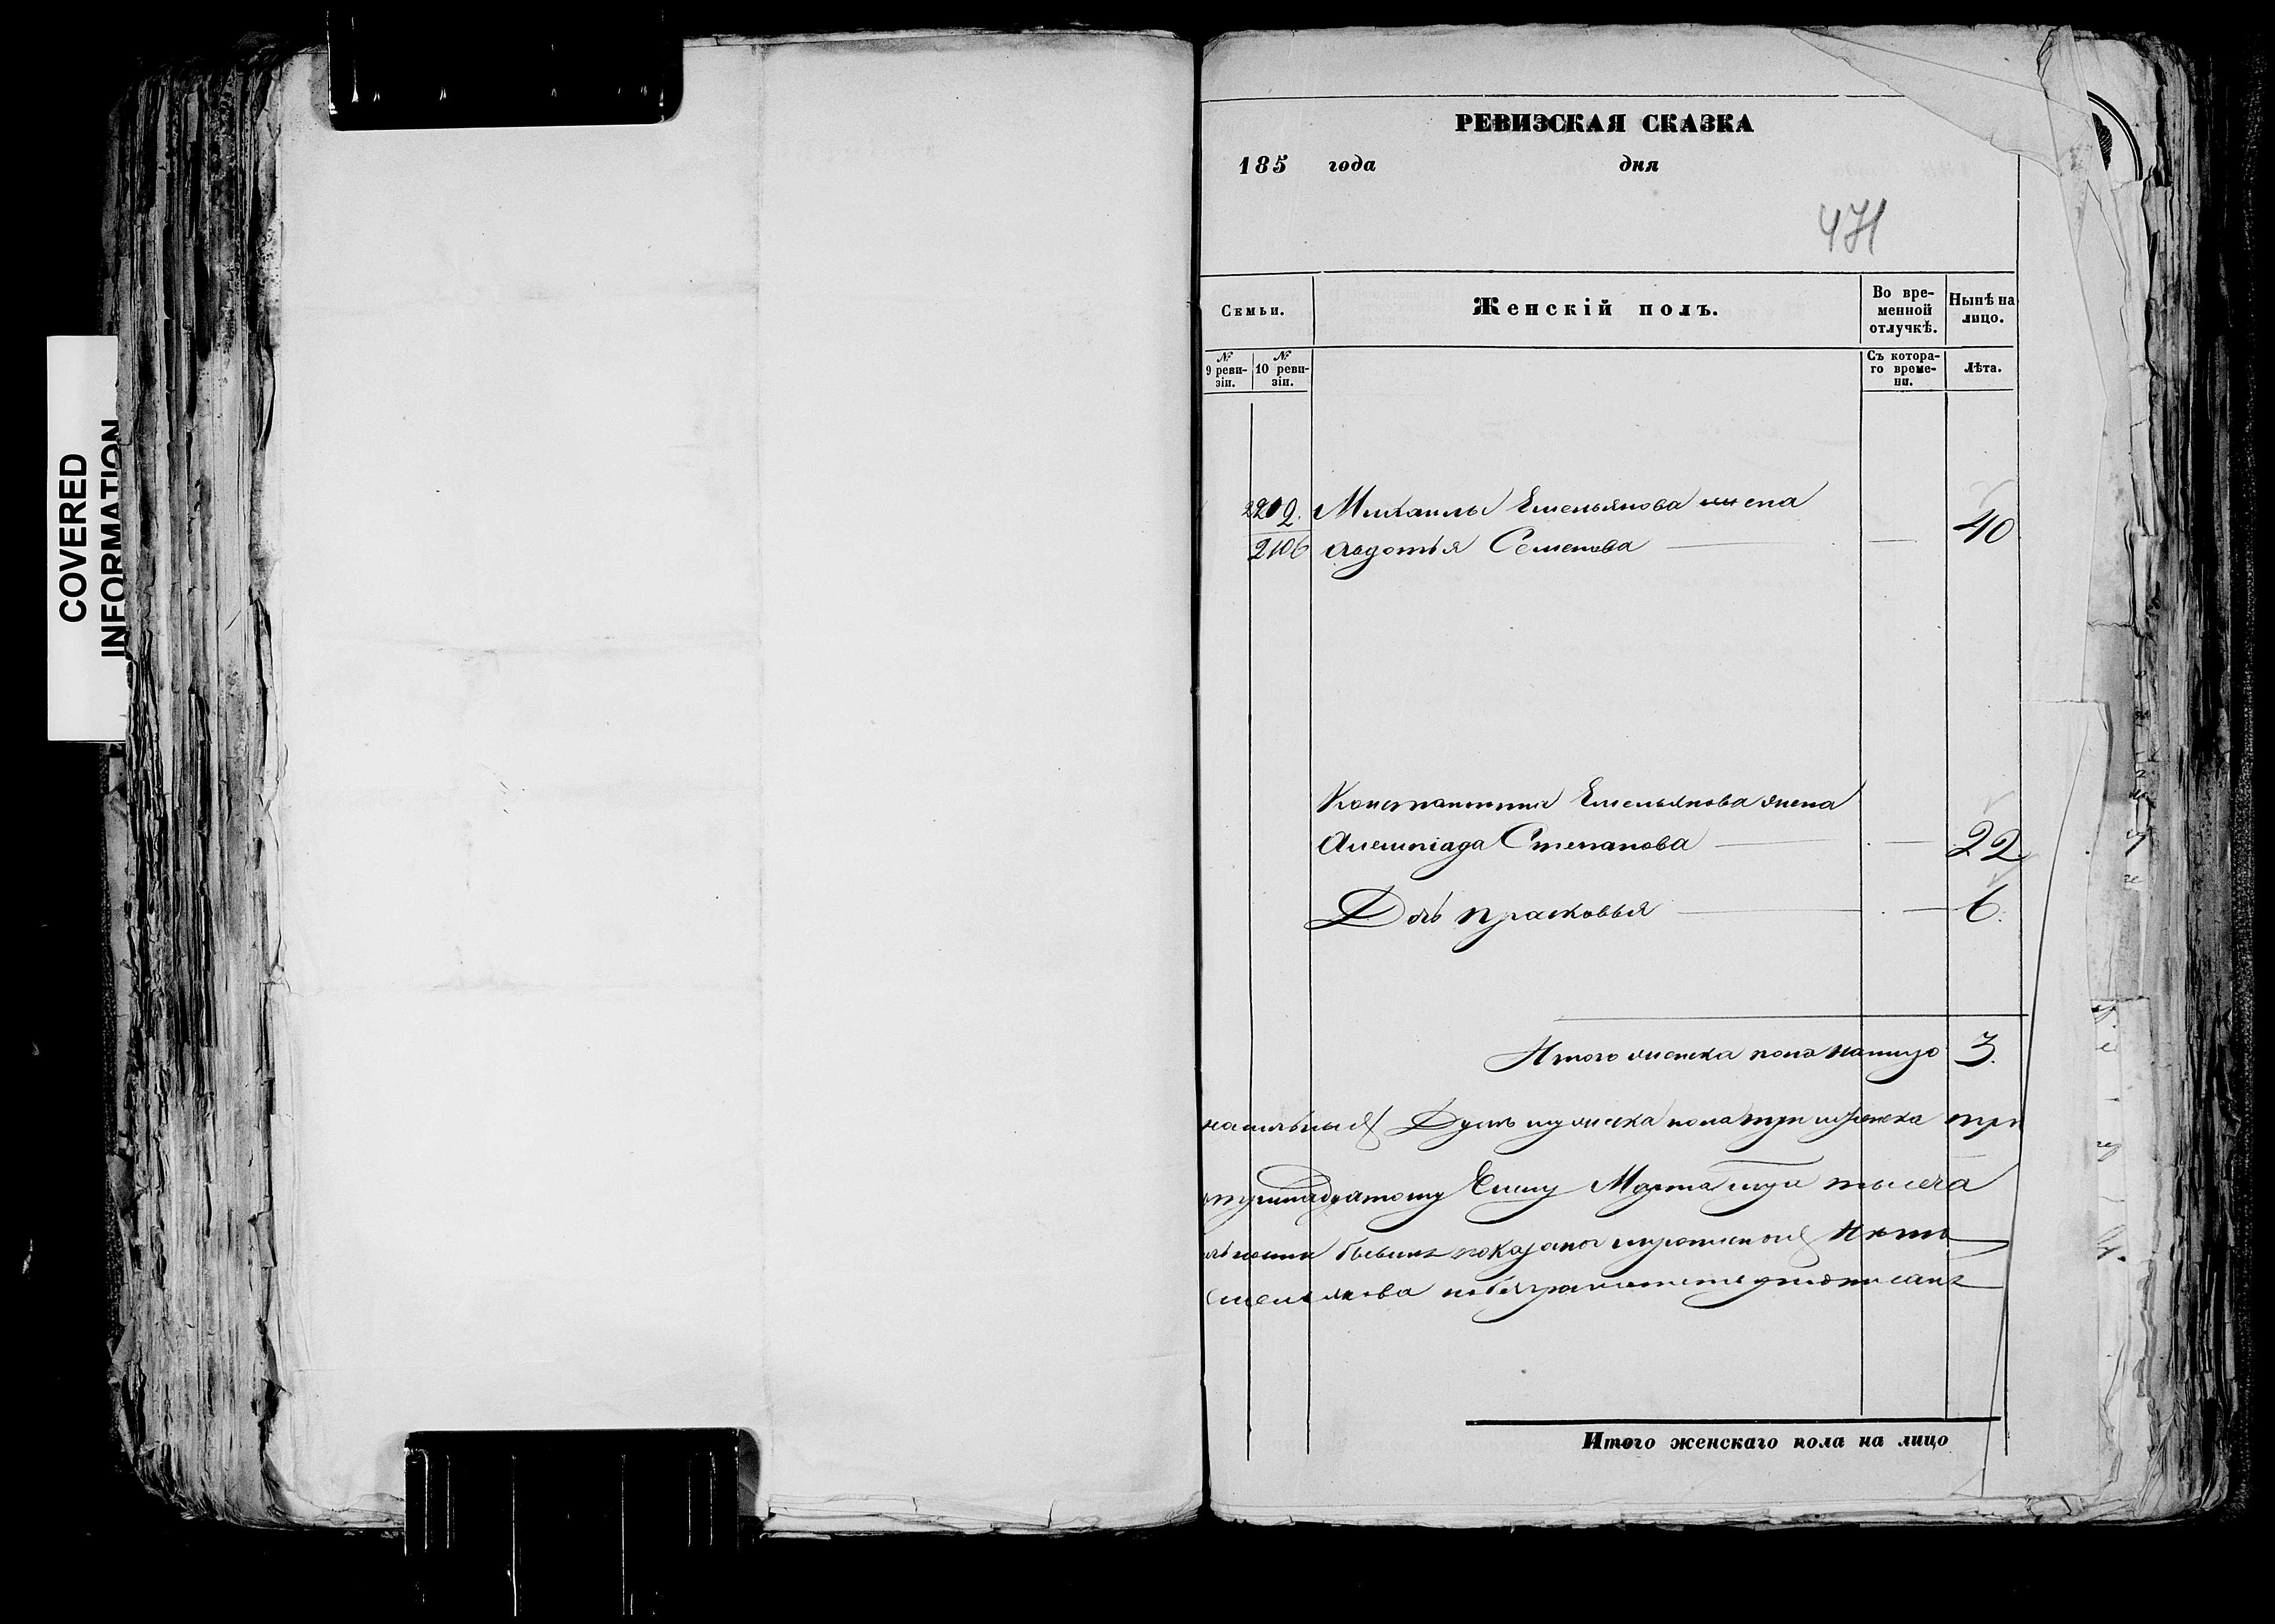 COVERED
INFORMATION
РЕВИЗСКАЯ СКАЗКА
185 года дня
471
Семьи.
Женскій полъ.
Во вре-
менной
отлучкѣ.
Нынѣ на
лицо.
№
9 реви-
зіи.
№
10 реви-
зіи.
Съ котора-
го време-
ни.
Лѣта.
2202. Михаилы Емельянова жена
2106 Авдотья Семенова — — 40
Константина Емельянова жена
Алемпіада Степанова — — 22.
Дочь Прасковья — — 6.
Итого женска пола налицо 3.
Душъ мужеска пола три женска три
Марта тысяча
показано
Емельянова
Итого женскаго пола на лицо